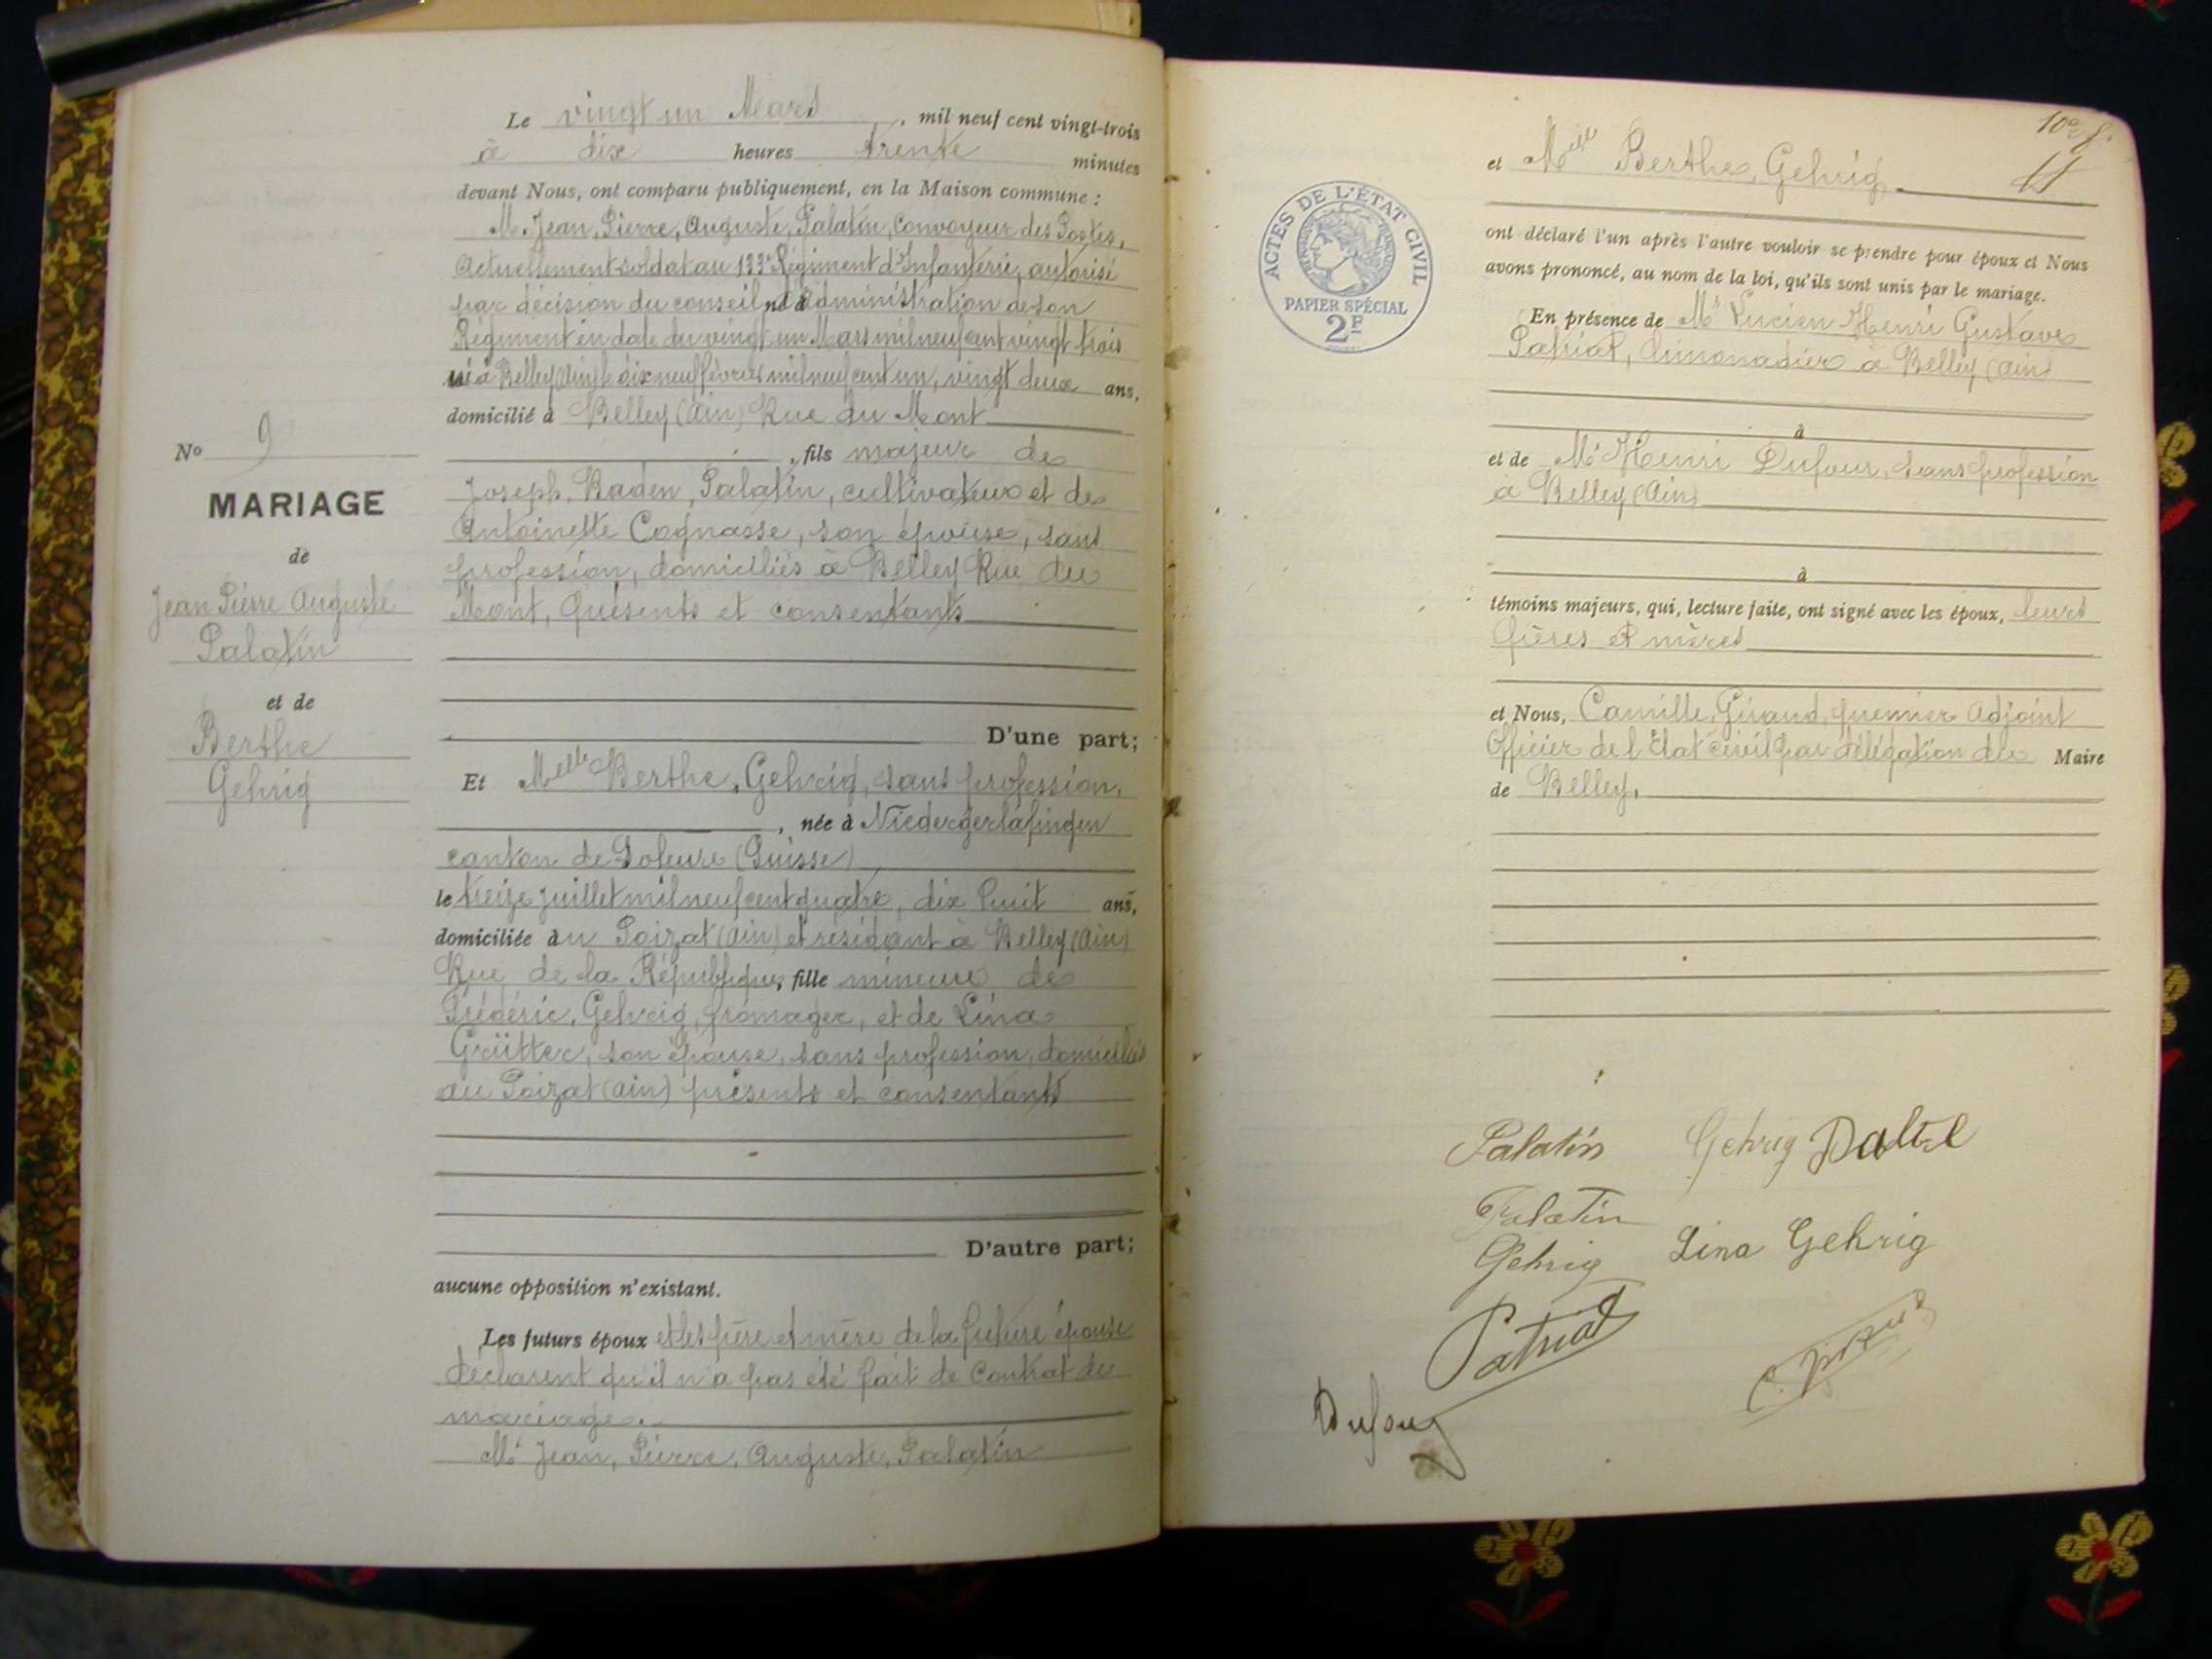 Le vingt un Mars, mil neuf cent vingt-trois
à dix heures trente minutes
devant Nous, ont comparu publiquement, en la Maison commune :
M. Jean, Pierre, Auguste, Palatin, Convoyeur des Postes,
Actuellement soldat au 133e Régiment d'Infanterie, autorisé
par décision du conseil né à d'administration de son
Régiment en date du vingt un Mars mil neuf cent vingt trois
né à Belley (Ain) le dix neuf février mil neuf cent un, vingt deux ans,
domicilié à Belley (Ain) Rue du Mont
, fils majeur de
Joseph, Baden, Palatin, cultivateur et de
Antoinette Cognasse, son épouse, sans
profession, domiciliés à Belley Rue du
Mont, présents et consentants
D'une part;
No 9
MARIAGE
de
Jean Pierre Auguste
Palatin
et de
Berthe
Gehrig
Et Melle Berthe, Gehrig, sans profession,
, née à Niedergerlafingen
canton de Soleure (Suisse)
le treize juillet mil neuf cent quatre, dix huit ans,
domiciliée au Poizat (Ain) et résidant à Belley (Ain)
Rue de la République, fille mineure de
Frédéric, Gehrig, fromager, et de Lina
Grütter, son épouse, sans profession, domiciliés
au Poizat (Ain) présents et consentants
D'autre part;
aucune opposition n'existant.
Les futurs époux et les père et mère de la future épouse
déclarent qu'il n'a pas été fait de contrat de
mariage.
Mr Jean, Pierre, Auguste, Palatin
11
et Melle Berthe, Gehrig
ACTES DE L'ÉTAT CIVIL
PAPIER SPÉCIAL
2F
ont déclaré l'un après l'autre vouloir se prendre pour époux et Nous
avons prononcé, au nom de la loi, qu'ils sont unis par le mariage.
En présence de Mr Lucien Henri Gustave
Patriat, limonadier à Belley (Ain)
à
et de Mr Henri Dufour, sans profession
à Belley (Ain)
à
témoins majeurs, qui, lecture faite, ont signé avec les époux, leurs
pères et mères
et Nous, Camille, Giraud, premier Adjoint
Officier de l'Etat civil par délégation du Maire
de Belley.
Palatin Gehrig
Palatin
Gehrig Lina Gehrig
Patriat
Dufour